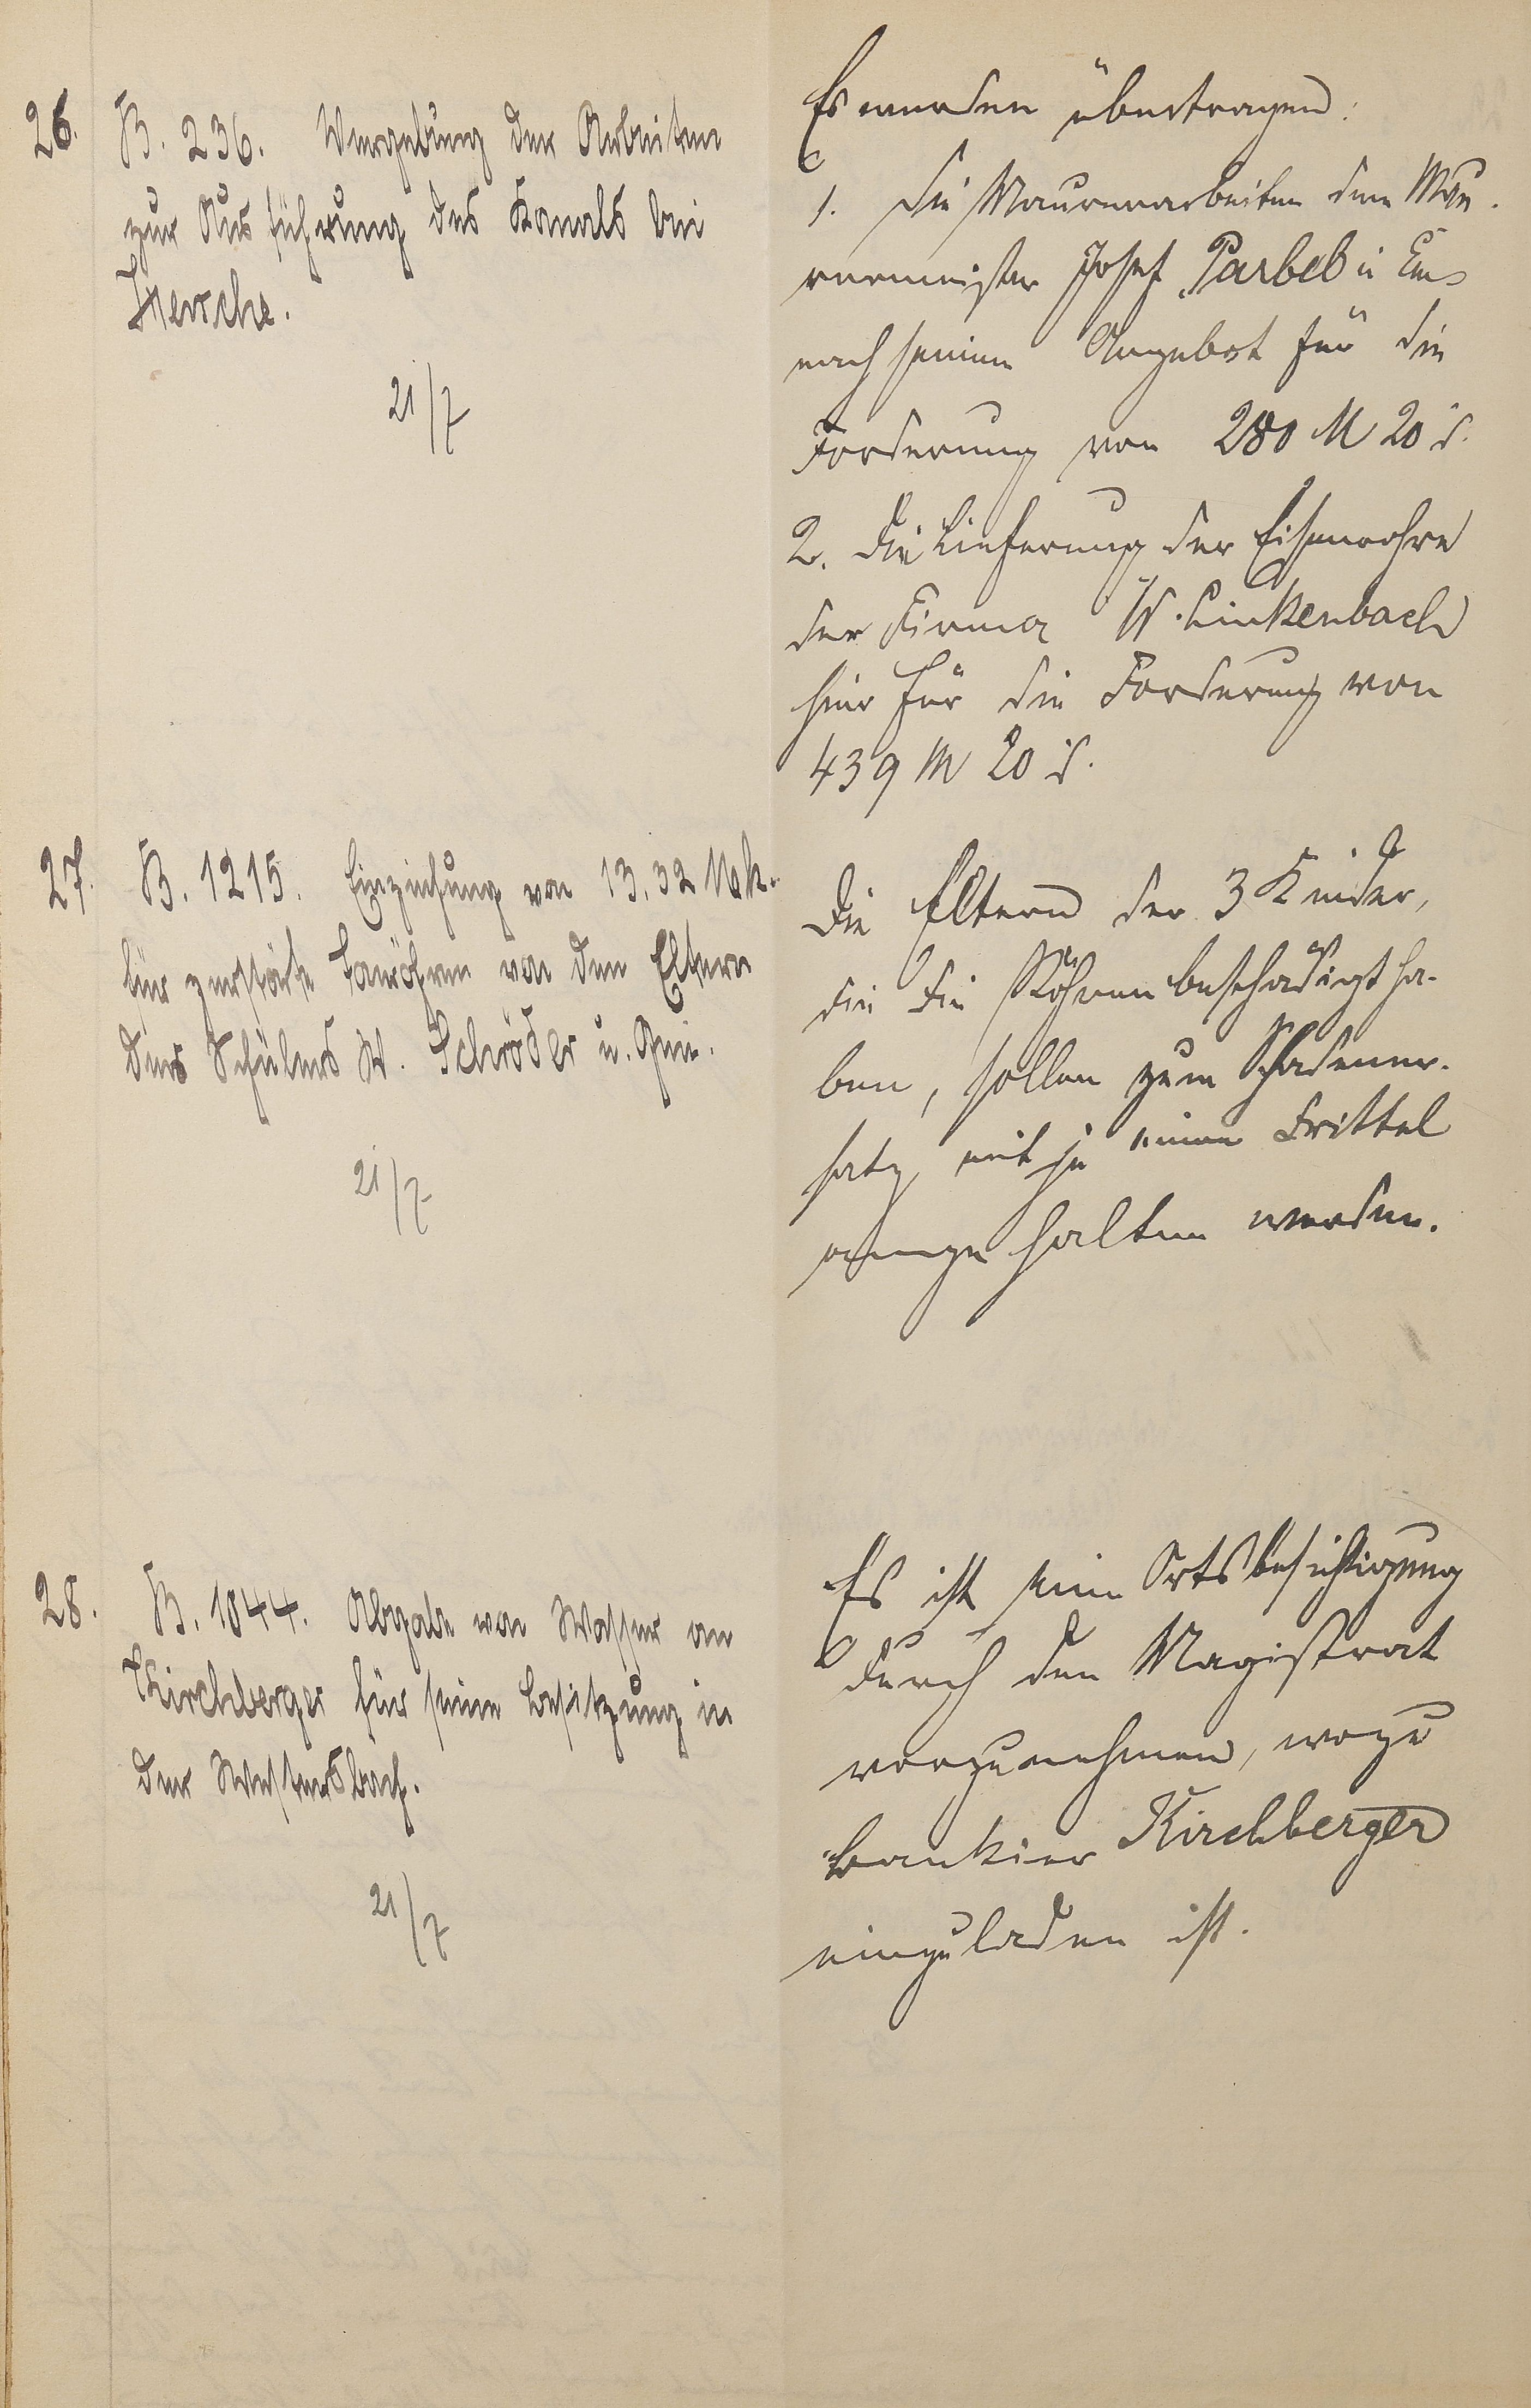 26.
B. 236. Vergebung der Arbeiten
zur Ausführung des Kanals bei
Hersche.
21/7
Es wurden übertragen:
1. Die Maurerarbeiten dem Mau-
rermeister Josef Parbel in Ems
nach seinem Angebot für die
Forderung von 280 M 20 d.
2. Die Lieferung der Eisenrohre
der Firma W. Linkenbach
hier für die Forderung von
439 M 20 d.
27.
B. 1215. Einziehung von 13,32 Mk.
für zerstörte Tonröhren von den Eltern
des Schülers W. Schröder u. Gen.
21/7
Die Eltern der 3 Kinder,
die die Röhren beschädigt ha-
ben, sollen zum Schadener-
satz mit je einem Drittel
angehalten werden.
28.
B. 1044. Abgabe von Wasser an
Kirchberger für seine Besitzung in
der Wintersbach.
21/7
Es ist eine Ortsbesichtigung
durch den Magistrat
vorzunehmen, wozu
Bankier Kirchberger
einzuladen ist.